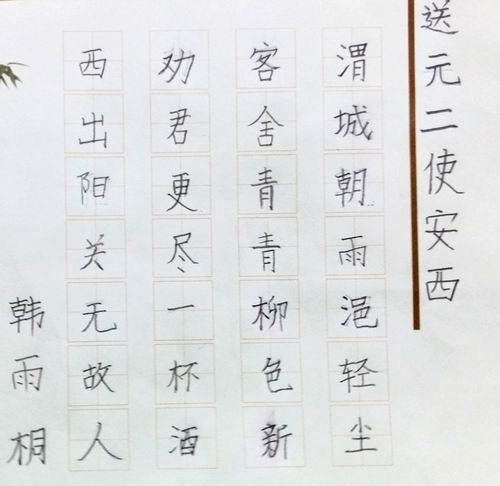 送元二使安西
渭城朝雨浥轻尘
客舍青青柳色新
劝君更尽一杯酒
西出阳关无故人
韩雨桐